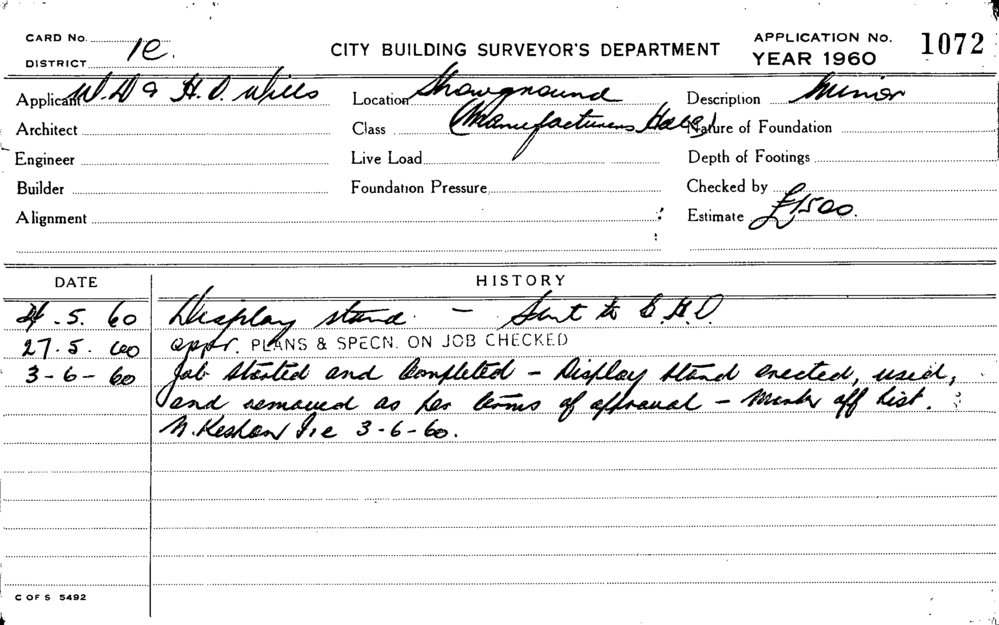 CARD No. 1e. CITY BUILDING SURVEYOR'S DEPARTMENT APPLICATION No. 1072
DISTRICT YEAR 1960
Applicant W. D & H. O. Wills Location Showground Description Minor
Architect Class (Manufacturers Hall) Nature of Foundation
Engineer Live Load Depth of Footings
Builder Foundation Pressure Checked by
Alignment Estimate £1500.
DATE HISTORY
5. 60 Display stand. - Sent to
27. 5. 60 appr. PLANS & SPECN. ON JOB CHECKED
3-6-60 Job Started and Completed - Display stand erected, used,
and removed as per terms of approval - Mark off list.
3-6-60.
C OF S 5492